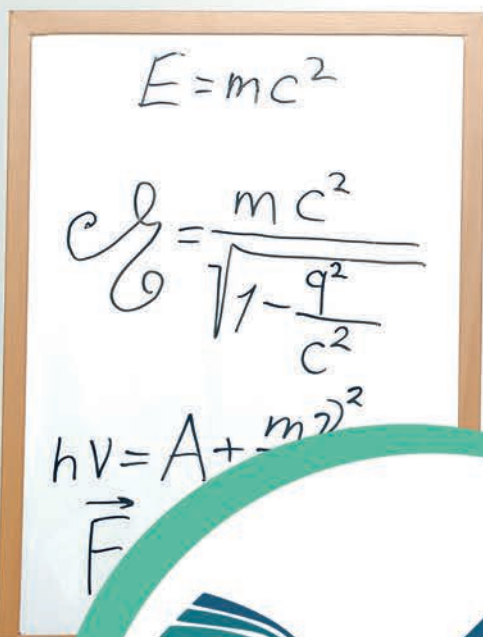 E = mc²
ℰ = mc² / √(1 - q²/c²)
hν = A + mv²
F⃗